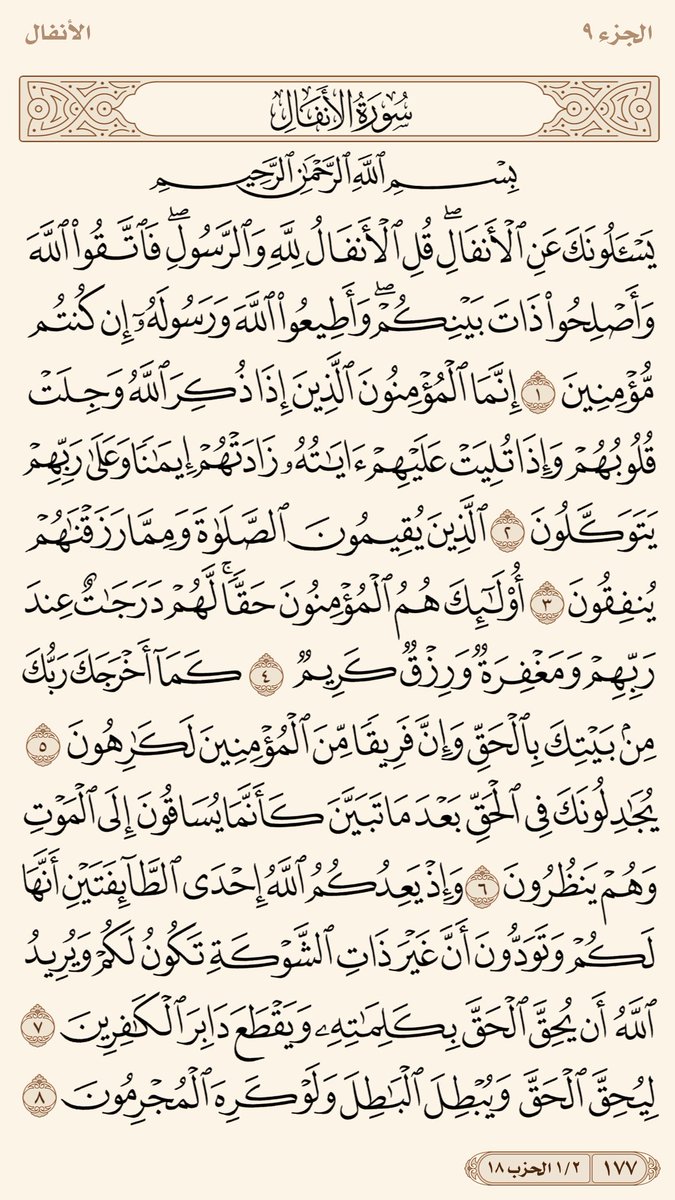 الجزء ٩
الأنفال
سُورَةُ الأَنفَالِ
بِسْمِ ٱللَّهِ ٱلرَّحْمَٰنِ ٱلرَّحِيمِ
يَسْـَٔلُونَكَ عَنِ ٱلْأَنفَالِۖ قُلِ ٱلْأَنفَالُ لِلَّهِ وَٱلرَّسُولِۖ فَٱتَّقُوا۟ ٱللَّهَ
وَأَصْلِحُوا۟ ذَاتَ بَيْنِكُمْۖ وَأَطِيعُوا۟ ٱللَّهَ وَرَسُولَهُۥٓ إِن كُنتُم
مُّؤْمِنِينَ ١ إِنَّمَا ٱلْمُؤْمِنُونَ ٱلَّذِينَ إِذَا ذُكِرَ ٱللَّهُ وَجِلَتْ
قُلُوبُهُمْ وَإِذَا تُلِيَتْ عَلَيْهِمْ ءَايَٰتُهُۥ زَادَتْهُمْ إِيمَٰنًا وَعَلَىٰ رَبِّهِمْ
يَتَوَكَّلُونَ ٢ ٱلَّذِينَ يُقِيمُونَ ٱلصَّلَوٰةَ وَمِمَّا رَزَقْنَٰهُمْ
يُنفِقُونَ ٣ أُو۟لَٰٓئِكَ هُمُ ٱلْمُؤْمِنُونَ حَقًّاۚ لَّهُمْ دَرَجَٰتٌ عِندَ
رَبِّهِمْ وَمَغْفِرَةٌ وَرِزْقٌ كَرِيمٌ ٤ كَمَآ أَخْرَجَكَ رَبُّكَ
مِنۢ بَيْتِكَ بِٱلْحَقِّ وَإِنَّ فَرِيقًا مِّنَ ٱلْمُؤْمِنِينَ لَكَٰرِهُونَ ٥
يُجَٰدِلُونَكَ فِى ٱلْحَقِّ بَعْدَ مَا تَبَيَّنَ كَأَنَّمَا يُسَاقُونَ إِلَى ٱلْمَوْتِ
وَهُمْ يَنظُرُونَ ٦ وَإِذْ يَعِدُكُمُ ٱللَّهُ إِحْدَى ٱلطَّآئِفَتَيْنِ أَنَّهَا
لَكُمْ وَتَوَدُّونَ أَنَّ غَيْرَ ذَاتِ ٱلشَّوْكَةِ تَكُونُ لَكُمْ وَيُرِيدُ
ٱللَّهُ أَن يُحِقَّ ٱلْحَقَّ بِكَلِمَٰتِهِۦ وَيَقْطَعَ دَابِرَ ٱلْكَٰفِرِينَ ٧
لِيُحِقَّ ٱلْحَقَّ وَيُبْطِلَ ٱلْبَٰطِلَ وَلَوْ كَرِهَ ٱلْمُجْرِمُونَ ٨
١٧٧ ١/٢ الحزب ١٨